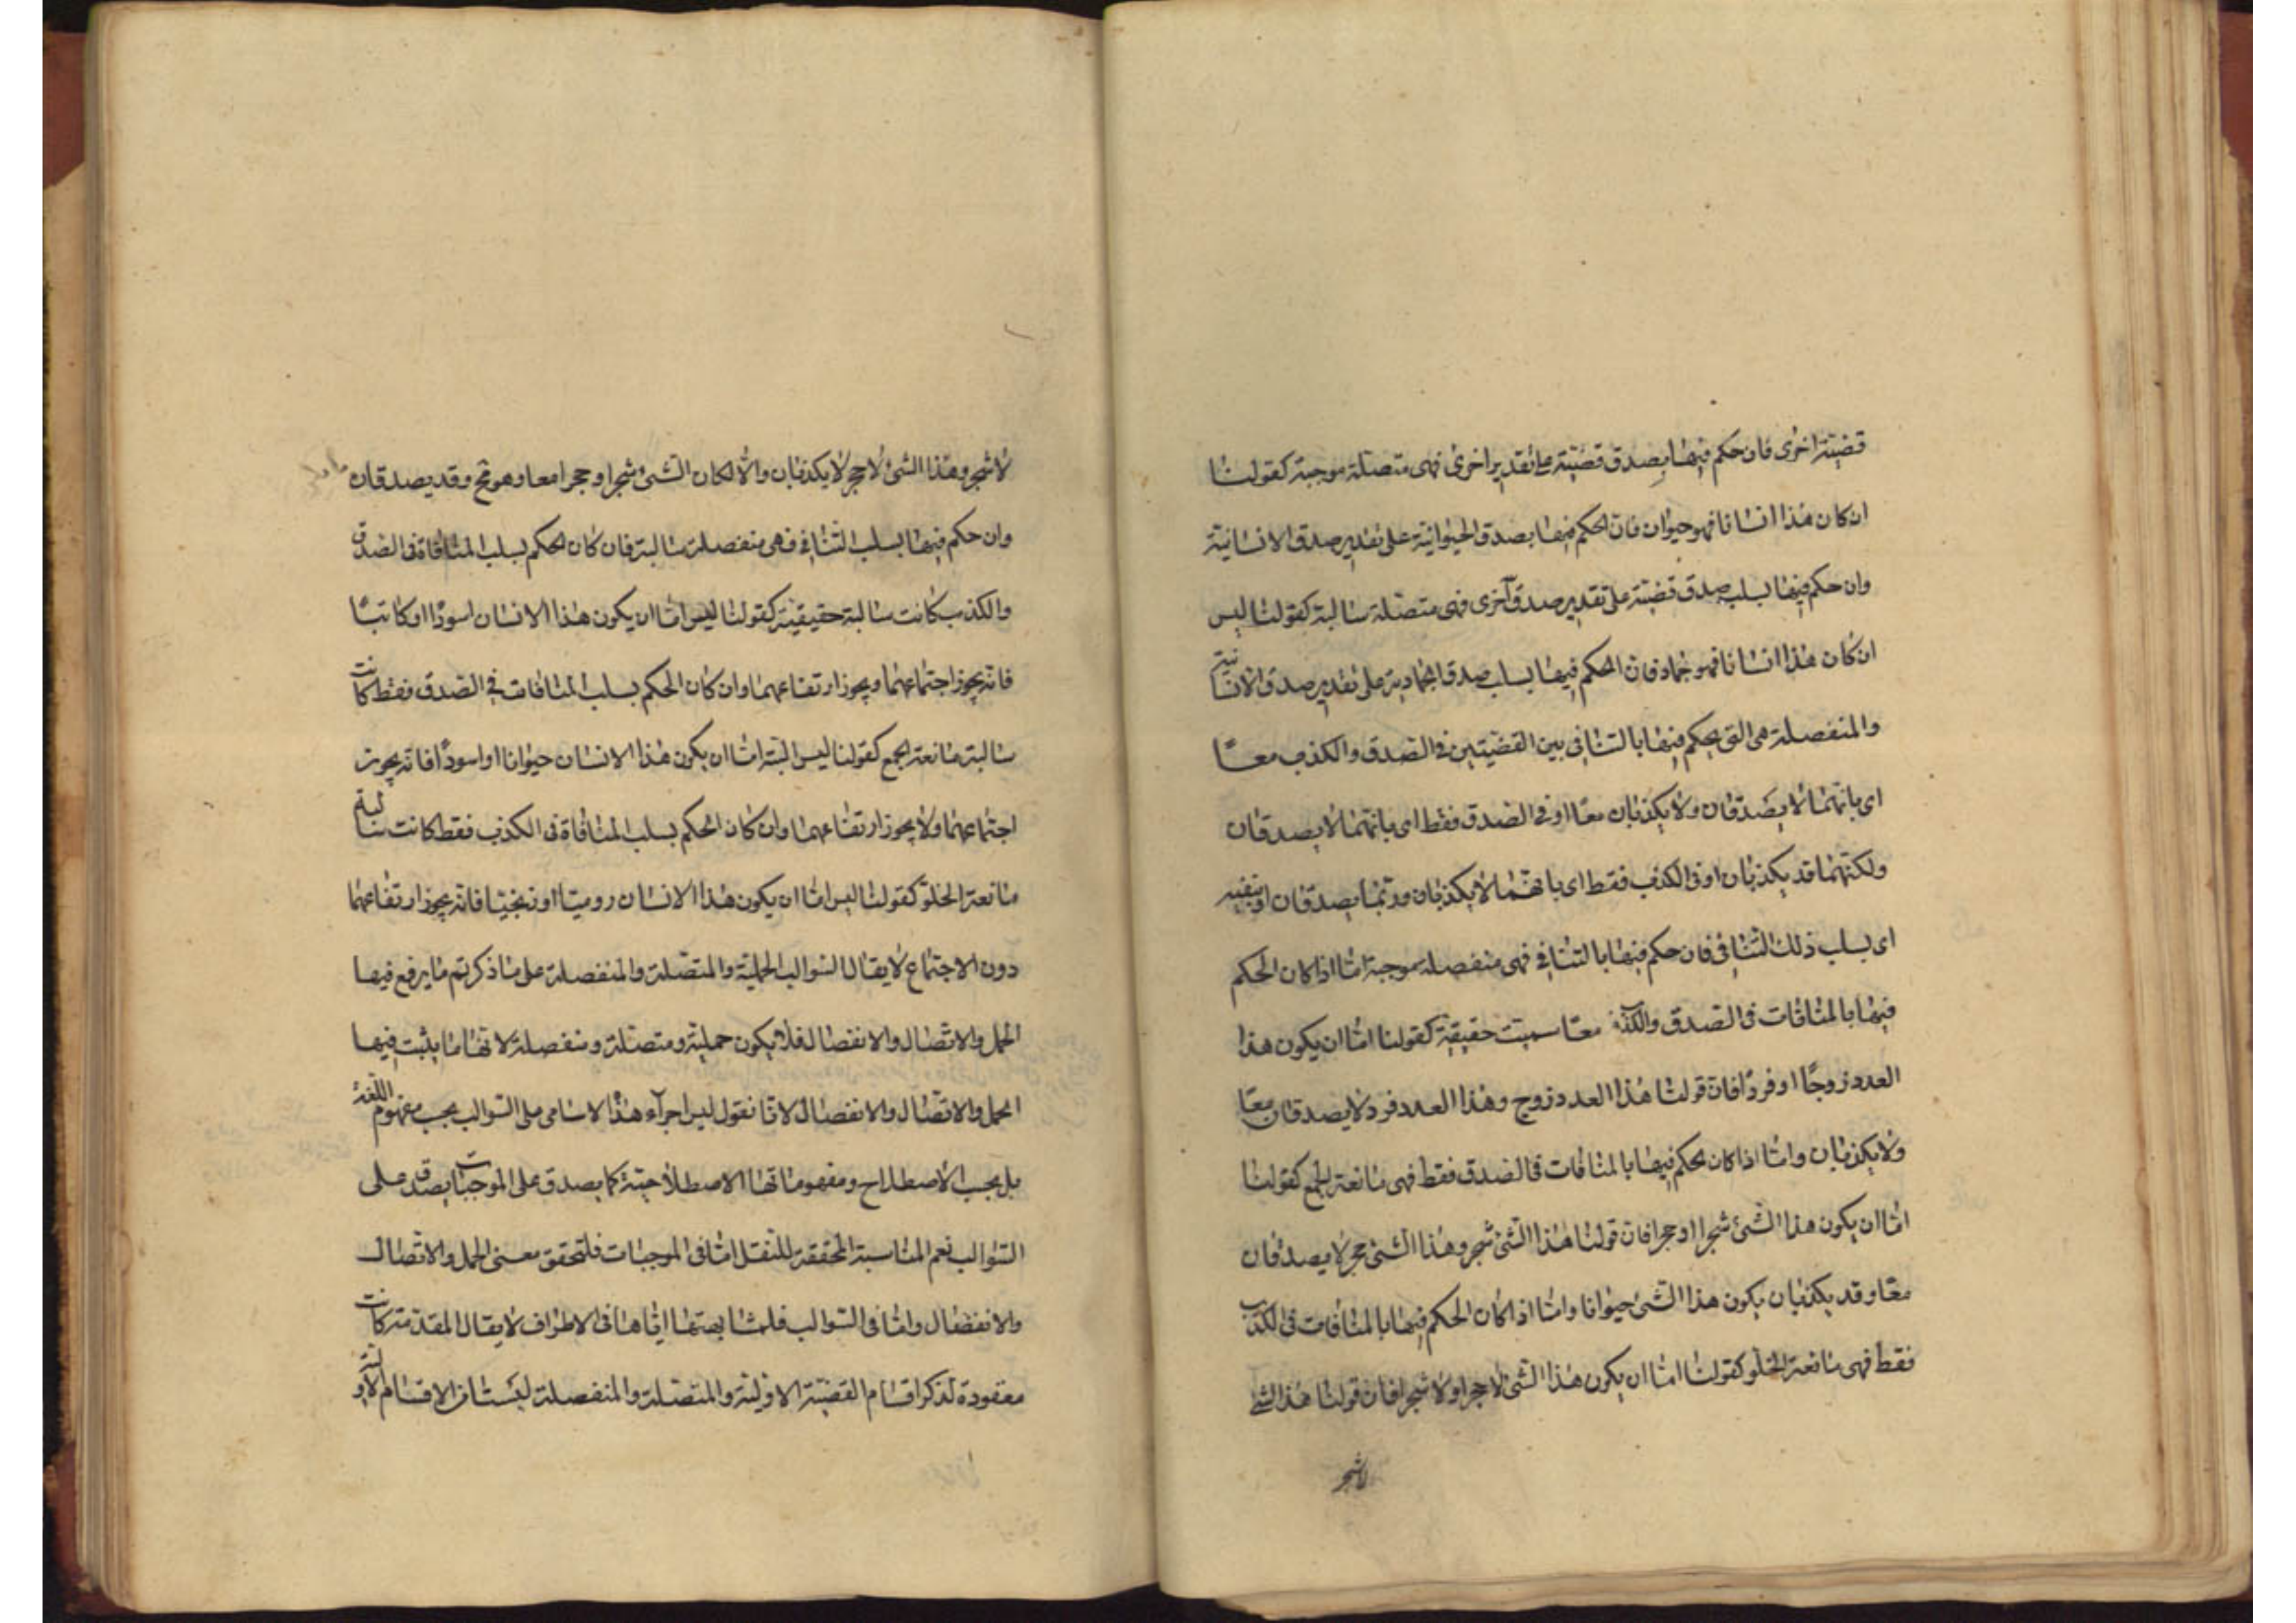 قضيّة اخرى فان حكم فيها بصدق قضيّة على تقدير اخرى فهى متصلة موجبة كقولنا
ان كان هذا انسانا فهو حيوان فان الحكم فيها بصدق الحيوانيّة على تقدير صدق الانسانيّة
وان حكم فيها بسلب صدق قضيّة على تقدير صدق اخرى فهى متصلة سالبة كقولنا ليس
ان كان هذا انسانا فهو جماد فان الحكم فيها بسلب صدق الجماديّة على تقدير صدق الانسانيّة
والمنفصلة هى التى يحكم فيها بالتنافى بين القضيّتين فى الصدق والكذب معًا
اى بانّهما لا يصدقان ولا يكذبان معًا او فى الصدق فقط اى بانّهما لا يصدقان
ولكنّهما قد يكذبان او فى الكذب فقط اى بانّهما لا يكذبان وربّما يصدقان او بنفيه
اى بسلب ذلك التنافى فان حكم فيها بالتنافى فهى منفصلة موجبة امّا اذا كان الحكم
فيها بالمنافات فى الصدق والكذب معًا سميت حقيقيّة كقولنا امّا ان يكون هذا
العدد زوجًا او فردًا فان قولنا هذا العدد زوج وهذا العدد فرد لا يصدقان معًا
ولا يكذبان وامّا اذا كان الحكم فيها بالمنافات فى الصدق فقط فهى مانعة الجمع كقولنا
امّا ان يكون هذا الشئ شجرا او حجرا فان قولنا هذا الشئ شجر وهذا الشئ حجر لا يصدقان
معًا وقد يكذبان بكون هذا الشئ حيوانا وامّا اذا كان الحكم فيها بالمنافات فى الكذب
فقط فهى مانعة الخلو كقولنا امّا ان يكون هذا الشئ لا حجرا ولا شجرا فان قولنا هذا الشئ
لا شجر
لا شجر وهذا الشئ لا حجر لا يكذبان والّا لكان الشئ شجرا وحجرا معا وهو مح وقد يصدقان
وان حكم فيها بسلب التنافى فهى منفصلة سالبة فان كان الحكم بسلب المنافاة فى الصدق
والكذب كانت سالبة حقيقيّة كقولنا ليس امّا ان يكون هذا الانسان اسودًا او كاتبًا
فانّه يجوز اجتماعهما ويجوز ارتفاعهما وان كان الحكم بسلب المنافات فى الصدق فقط كانت
سالبة مانعة الجمع كقولنا ليس البتة امّا ان يكون هذا الانسان حيوانا او اسودًا فانّه يجوز
اجتماعهما ولا يجوز ارتفاعهما وان كان الحكم بسلب المنافاة فى الكذب فقط كانت سالبة
مانعة الخلوّ كقولنا ليس امّا ان يكون هذا الانسان روميّا او زنجيّا فانّه يجوز ارتفاعهما
دون الاجتماع لا يقال السّوالب الحمليّة والمتّصلة والمنفصلة على ما ذكرتم ما يرفع فيها
الحمل والاتّصال والانفصال فلا يكون حمليّة ومتصلة ومنفصلة لانها ما يثبت فيها
الحمل والاتّصال والانفصال لانّا نقول ليس اجراء هذه الاسامى على السّوالب بحسب مفهوم اللّغة
بل بحسب الاصطلاح ومفهوماتها الاصطلاحيّة كما يصدق على الموجبات يصدق على
السّوالب نعم المناسبة المحققة للنقل امّا فى الموجبات فلتحقق معنى الحمل والاتّصال
والانفصال وامّا فى السّوالب فلمشابهتها ايّاها فى الاطراف لا يقال المقدّمة كانت
معقودة لذكر اقسام القضيّة الاوّليّة والمتّصلة والمنفصلة ليستا من الاقسام الاوليّة